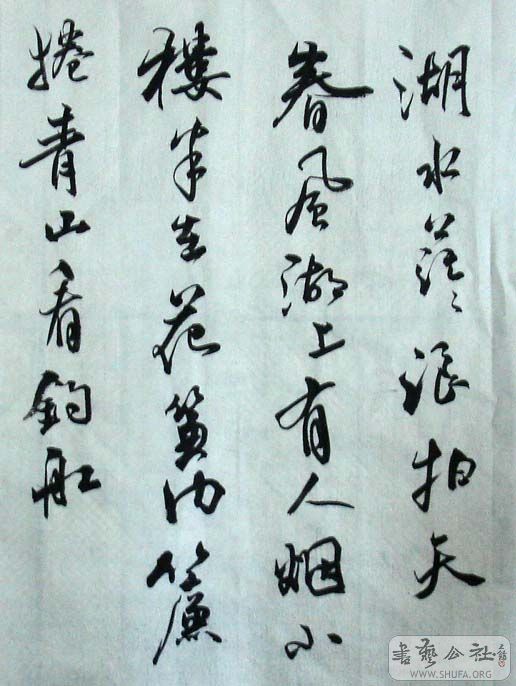 湖水茫々浪拍天
春風湖上有人烟小
樓半在花内簾
捲青山看釣船
書藝公社
WWW.SHUFA.ORG